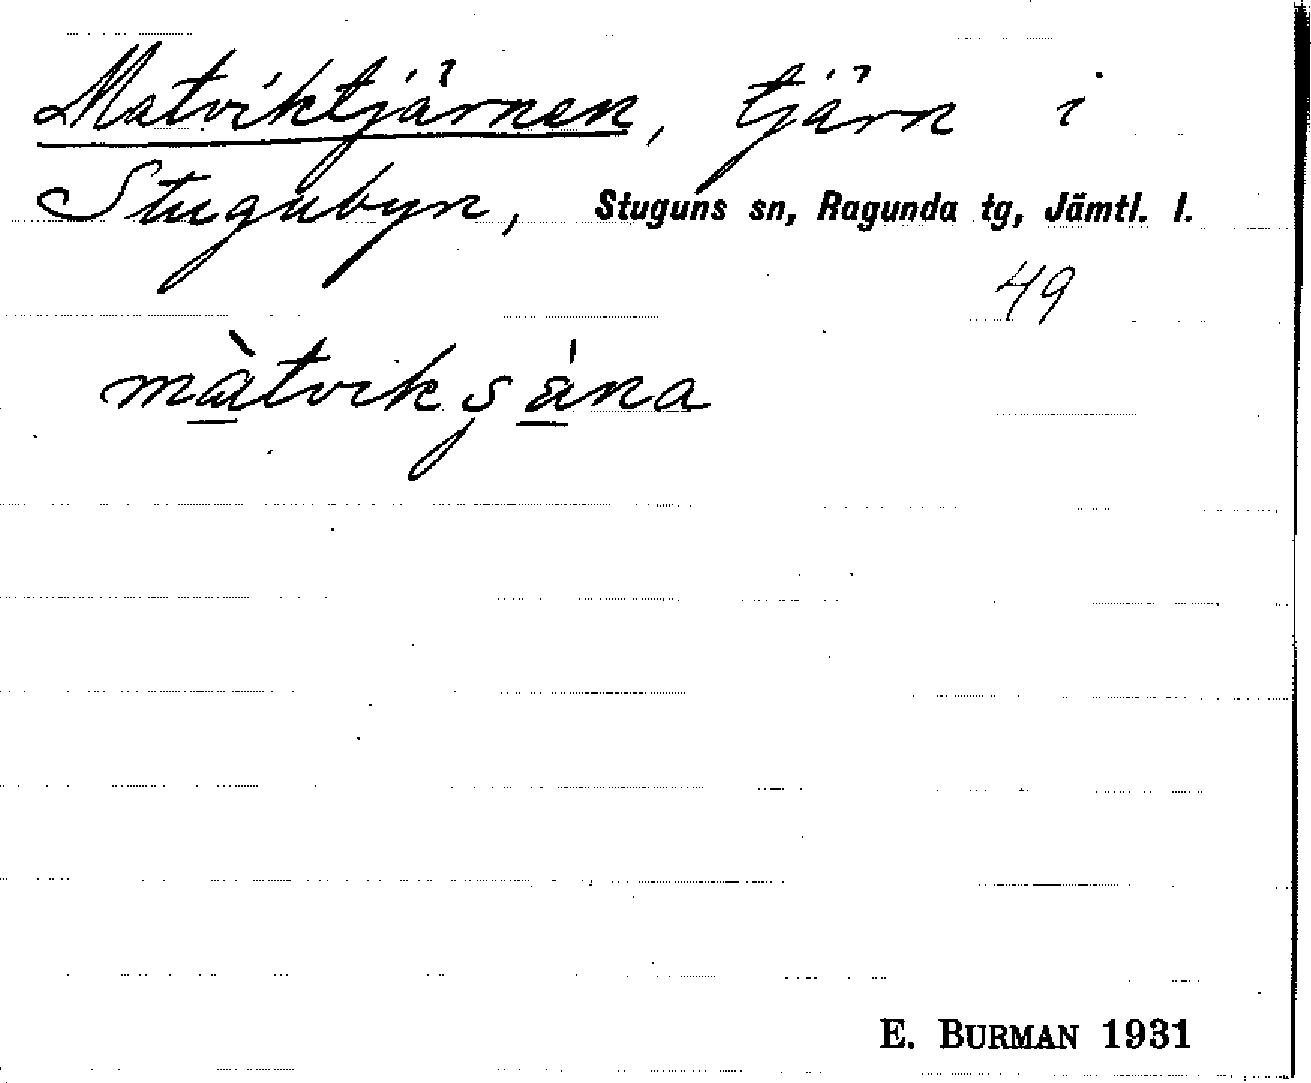 Matviktjärnen, tjärn i
Stugubyn, Stuguns sn, Ragunda tg, Jämtl. l.
49
E. BURMAN 1931